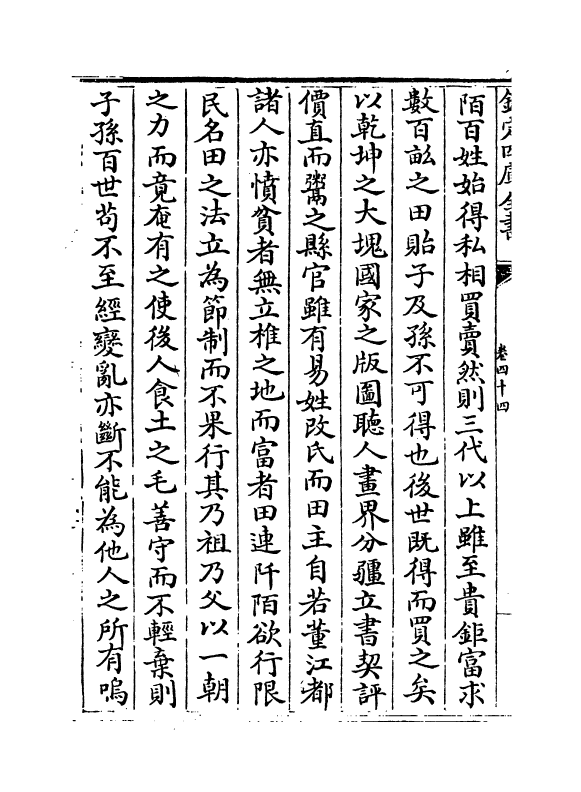 欽定四庫全書
卷四十四
陌百姓始得私相買賣然則三代以上雖至貴鉅富求
數百畝之田貽子及孫不可得也後世既得而買之矣
以乾坤之大塊國家之版圖聽人畫界分疆立書契評
價直而鬻之縣官雖有易姓改氏而田主自若董江都
諸人亦憤貧者無立椎之地而富者田連阡陌欲行限
民名田之法立為節制而不果行其乃祖乃父以一朝
之力而竟奄有之使後人食土之毛善守而不輕棄則
子孫百世苟不至經變亂亦斷不能為他人之所有嗚